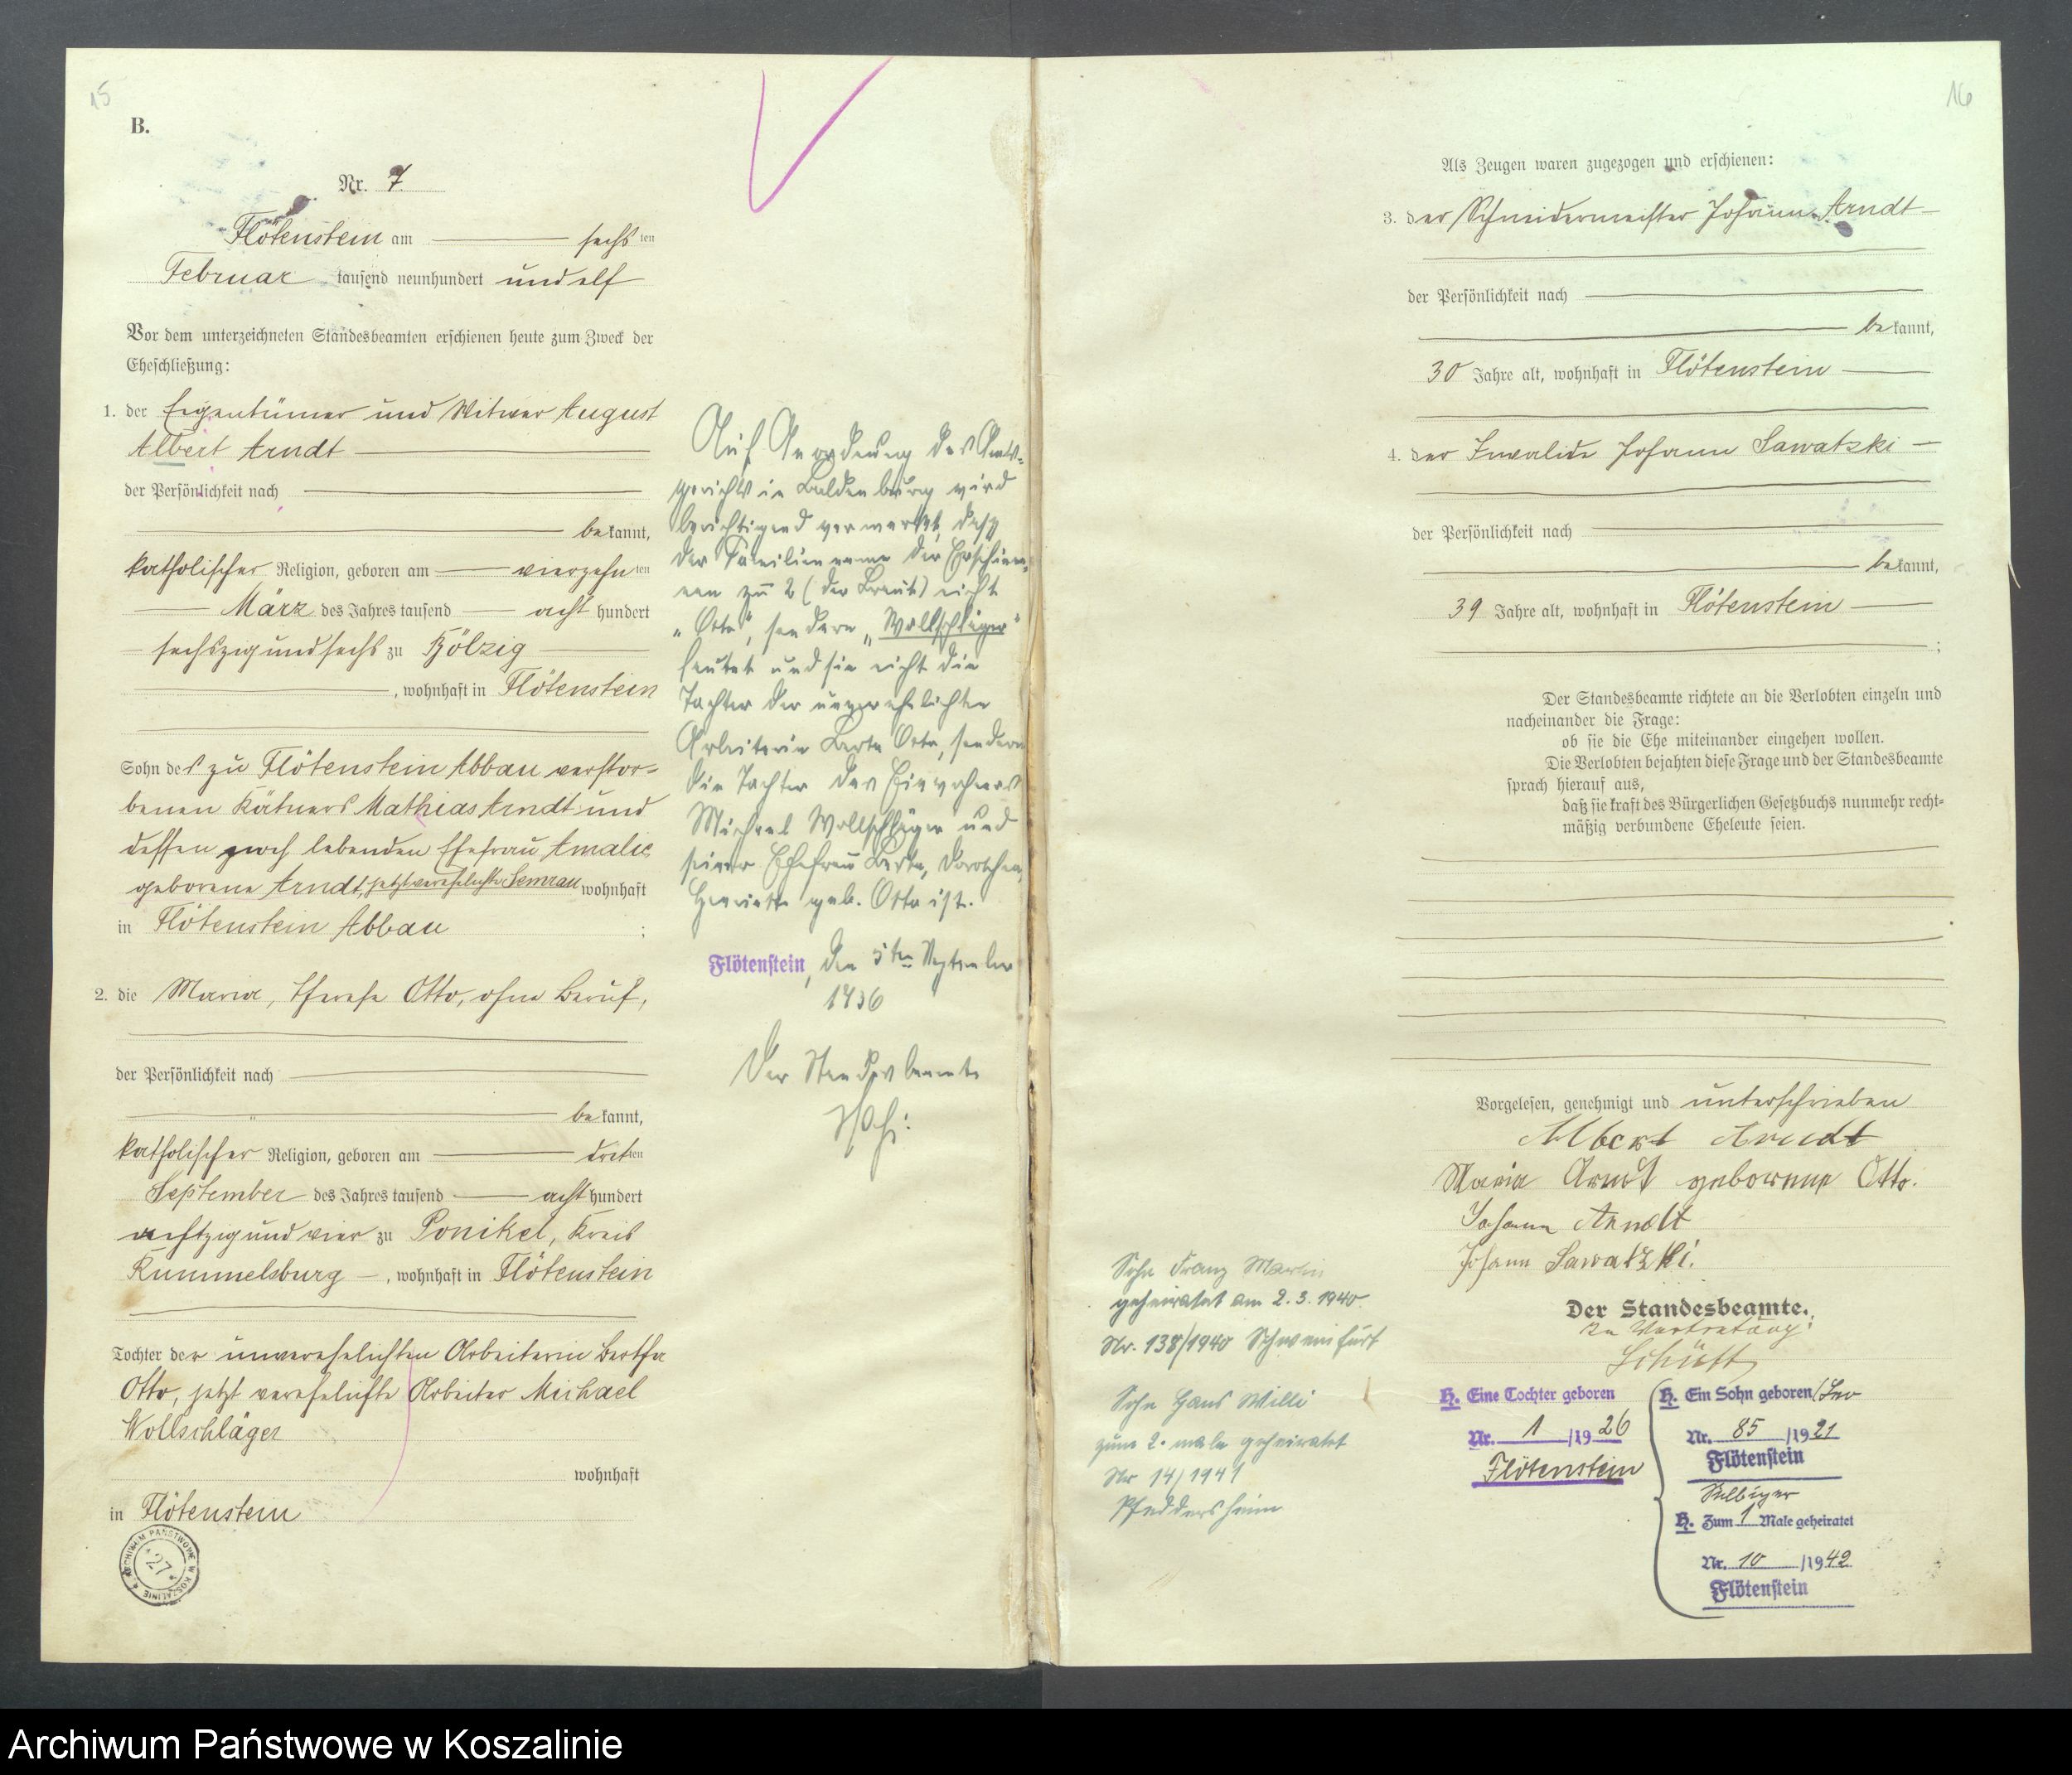 15
B.
Nr. 7
Flötenstein am sechsten
Februar tausend neunhundert und elf
Vor dem unterzeichneten Standesbeamten erschienen heute zum Zweck der
Eheschließung:
1. der Eigentümer und Witwer August
Albert Arndt
der Persönlichkeit nach
bekannt,
katholischer Religion, geboren am vierzehnten
März des Jahres tausend acht hundert
sechszig und sechs zu Kölzig
, wohnhaft in Flötenstein
Sohn des zu Flötenstein Abbau verstor-
benen Kätners Mathias Arndt und
dessen noch lebenden Ehefrau Amalie
geborene Arndt, jetzt verehelichte Semrau wohnhaft
in Flötenstein Abbau ;
2. die Maria, Therese Otto, ohne Beruf,
der Persönlichkeit nach
bekannt,
katholischer Religion, geboren am dritten
September des Jahres tausend acht hundert
achtzig und vier zu Ponikel, Kreis
Rummelsburg , wohnhaft in Flötenstein
Tochter der unverehelichten Arbeiterin Bertha
Otto, jetzt verehelichte Arbeiter Michael
Wollschläger
wohnhaft
in Flötenstein
ARCHIWUM PAŃSTWOWE W KOSZALINIE
27
Auf Anordnung des Amts-
gerichts in Baldenburg wird
berichtigend vermerkt, daß
der Familienname der Erschiene-
nen zu 2 (der Braut) nicht
„Otto", sondern „Wollschläger"
lautet und sie nicht die
Tochter der unverehelichten
Arbeiterin Berta Otto, sondern
die Tochter des Einwohners
Michael Wollschläger und
seiner Ehefrau Berta, Dorothea,
Henriette geb. Otto ist.
Flötenstein, den 5ten September
1936
Der Standesbeamte
16
Als Zeugen waren zugezogen und erschienen:
3. der Schneidermeister Johann Arndt
der Persönlichkeit nach
bekannt,
30 Jahre alt, wohnhaft in Flötenstein
4. der Invalide Johann Sawatzki
der Persönlichkeit nach
bekannt,
39 Jahre alt, wohnhaft in Flötenstein
;
Der Standesbeamte richtete an die Verlobten einzeln und
nacheinander die Frage:
ob sie die Ehe miteinander eingehen wollen.
Die Verlobten bejahten diese Frage und der Standesbeamte
sprach hierauf aus,
daß sie kraft des Bürgerlichen Gesetzbuchs nunmehr recht-
mäßig verbundene Eheleute seien.
Vorgelesen, genehmigt und unterschrieben
Albert Arndt
Maria Arndt geborene Otto.
Johann Arndt
Johann Sawatzki.
Der Standesbeamte.
In Vertretung:
Schütt
Sohn Franz Martin
geheiratet am 2.3.1940
Nr. 138/1940 Schweinfurt
Sohn Hans Willi
zum 2. male geheiratet
Nr 14/1941
Pfeddersheim
H. Eine Tochter geboren
Nr. 1 /1926
Flötenstein
H. Ein Sohn geboren /Leo
Nr. 85 /1921
Flötenstein
Selbiger
H. Zum 1 Male geheiratet
Nr. 10 /1942
Flötenstein
Archiwum Państwowe w Koszalinie